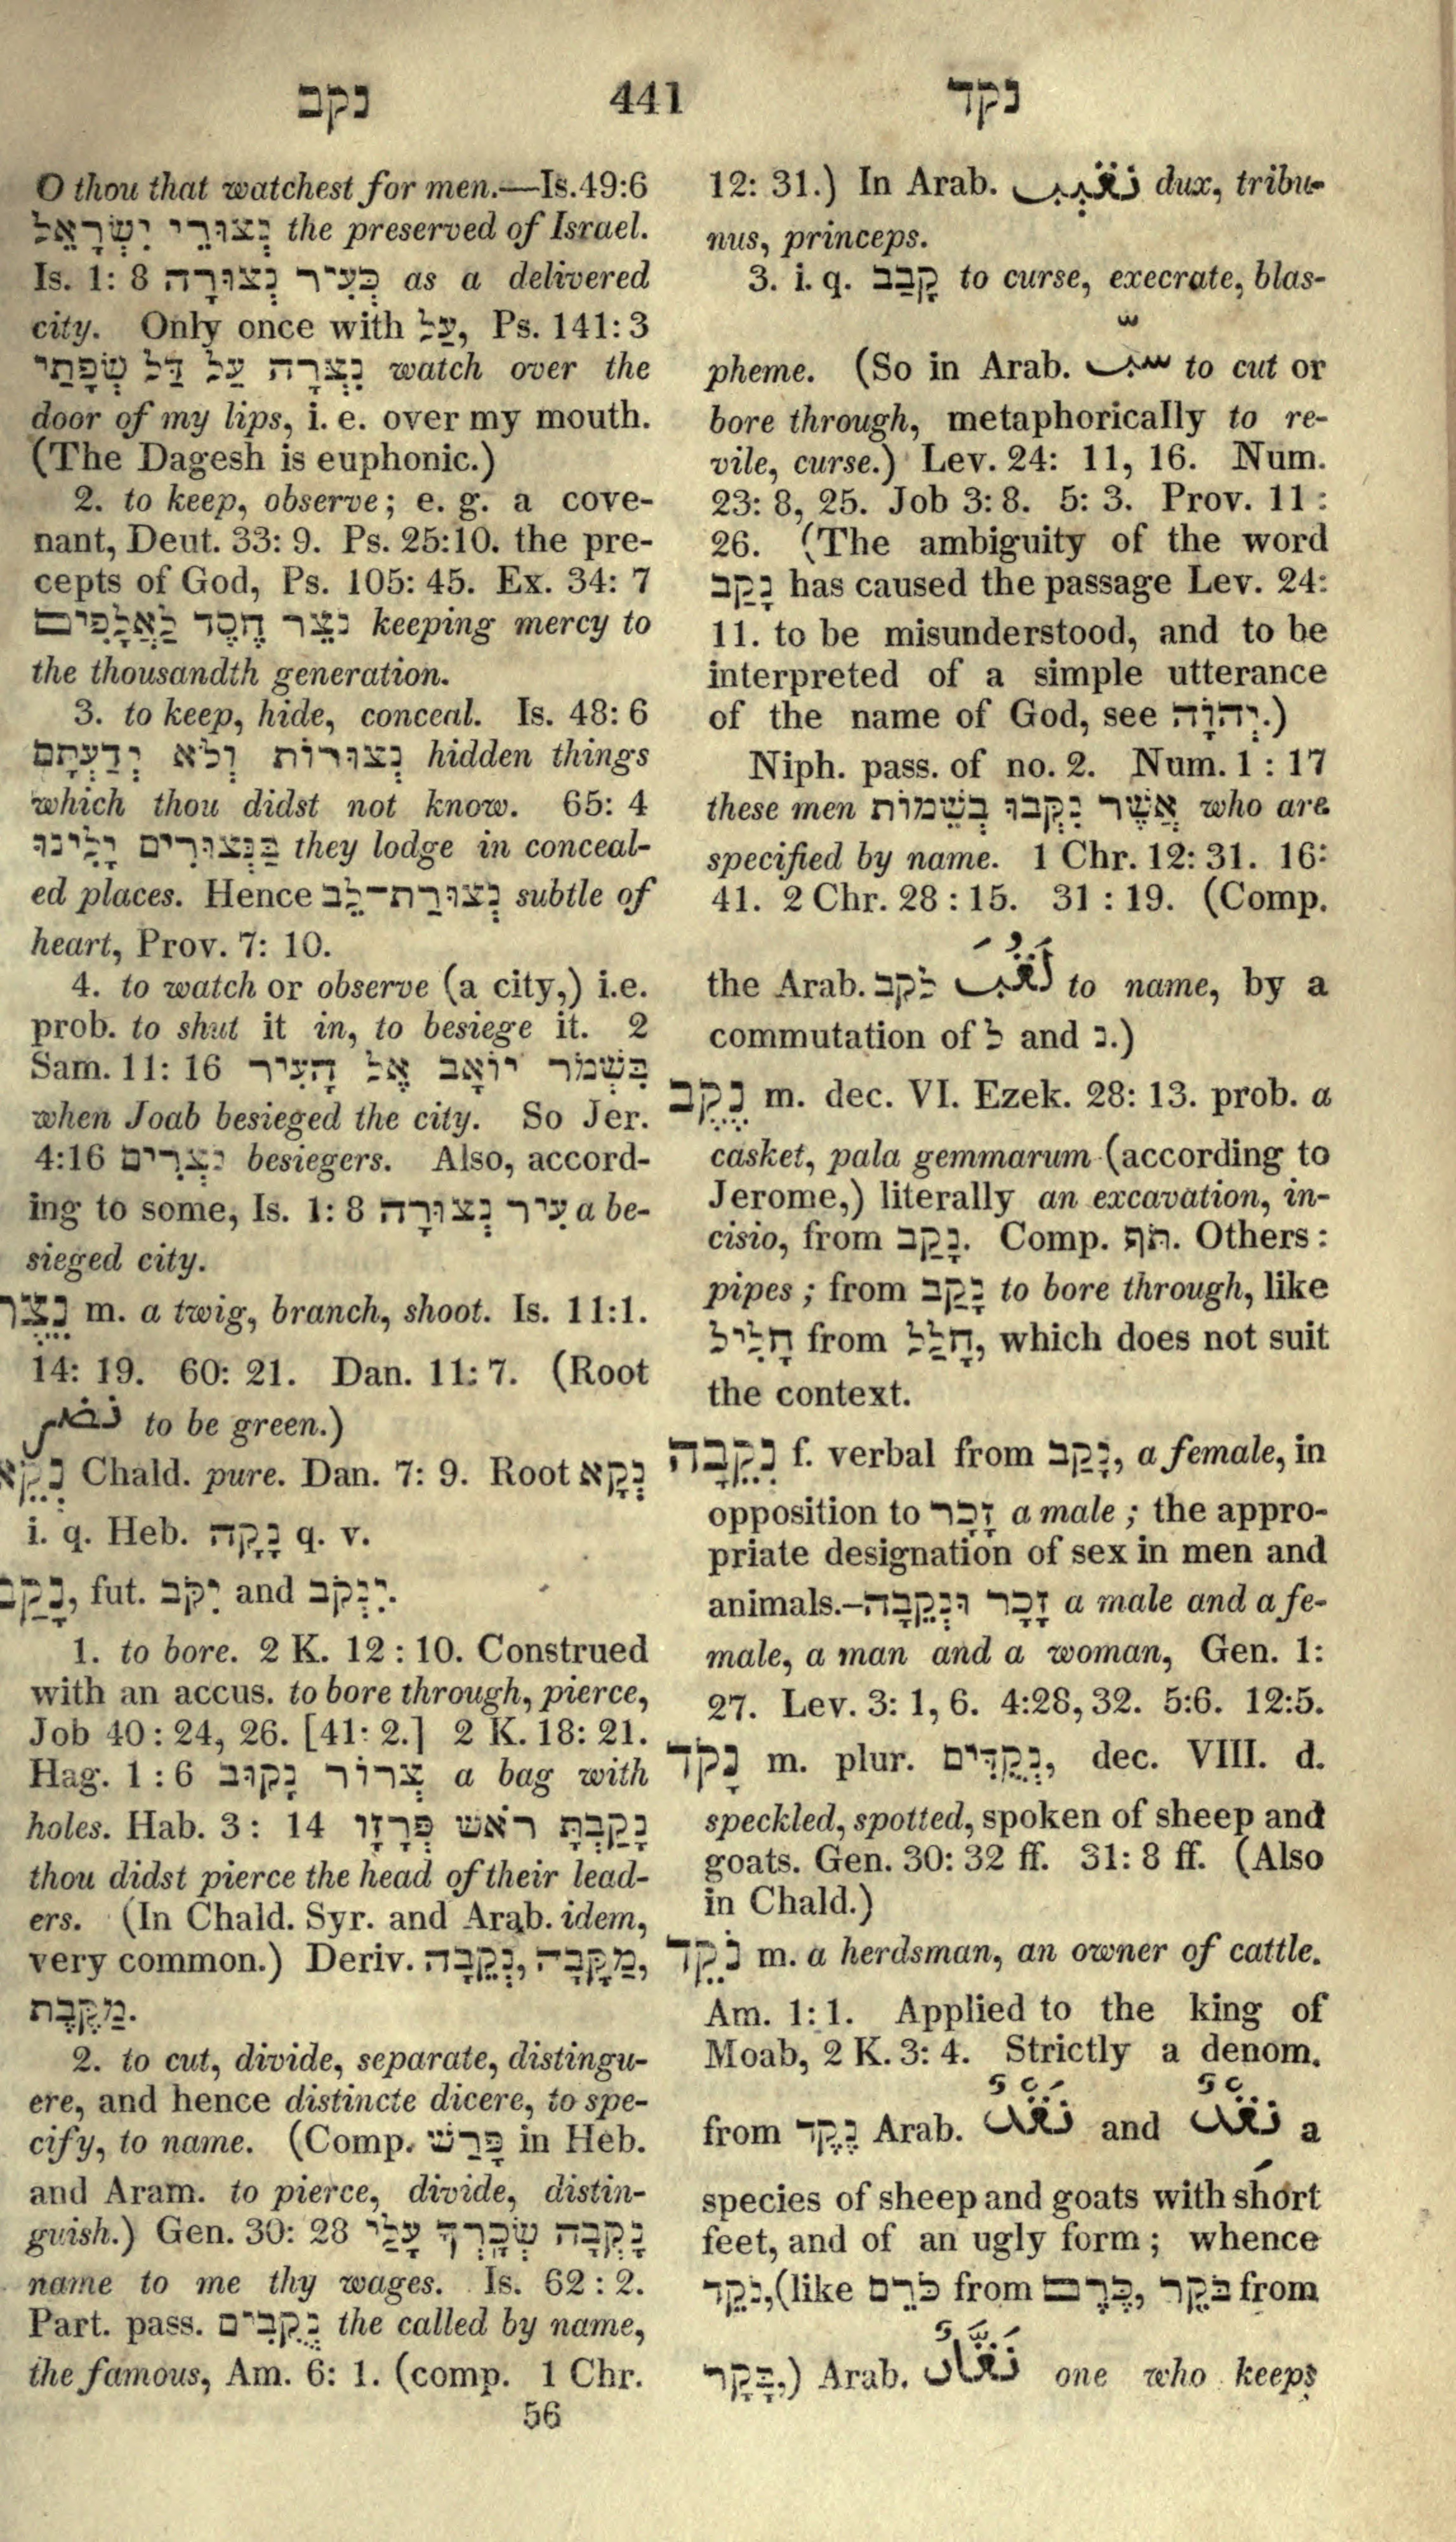 נקב 441 נקד
O thou that watchest for men.—Is.49:6
נְצוּרֵי יִשְׂרָאֵל the preserved of Israel.
Is. 1: 8 כְּעִיר נְצוּרָה as a delivered
city. Only once with עַל, Ps. 141: 3
נִצְּרָה עַל דַּל שְׂפָתַי watch over the
door of my lips, i. e. over my mouth.
(The Dagesh is euphonic.)
2. to keep, observe; e. g. a cove-
nant, Deut. 33: 9. Ps. 25:10. the pre-
cepts of God, Ps. 105: 45. Ex. 34: 7
נֹצֵר חֶסֶד לַאֲלָפִים keeping mercy to
the thousandth generation.
3. to keep, hide, conceal. Is. 48: 6
נְצוּרוֹת וְלֹא יְדַעְתָּם hidden things
which thou didst not know. 65: 4
בַּנְּצוּרִים יָלִינוּ they lodge in conceal-
ed places. Hence נְצוּרַת־לֵב subtle of
heart, Prov. 7: 10.
4. to watch or observe (a city,) i.e.
prob. to shut it in, to besiege it. 2
Sam. 11: 16 בִּשְׁמֹר יוֹאָב אֶל הָעִיר
when Joab besieged the city. So Jer.
4:16 נֹצְרִים besiegers. Also, accord-
ing to some, Is. 1: 8 עִיר נְצוּרָה a be-
sieged city.
נֵצֶר m. a twig, branch, shoot. Is. 11:1.
14: 19. 60: 21. Dan. 11: 7. (Root
نضر to be green.)
נְקֵא Chald. pure. Dan. 7: 9. Root נְקָא
i. q. Heb. נָקָה q. v.
נָקַב, fut. יִקֹּב and יִנְקֹב.
1. to bore. 2 K. 12 : 10. Construed
with an accus. to bore through, pierce,
Job 40 : 24, 26. [41: 2.] 2 K. 18: 21.
Hag. 1 : 6 צְרוֹר נָקוּב a bag with
holes. Hab. 3 : 14 נָקַבְתָּ רֹאשׁ פְּרָזָו
thou didst pierce the head of their lead-
ers. (In Chald. Syr. and Arab. idem,
very common.) Deriv. נְקֵבָה, מַקָּבָה,
מַקֶּבֶת.
2. to cut, divide, separate, distingu-
ere, and hence distincte dicere, to spe-
cify, to name. (Comp. פָּרַשׁ in Heb.
and Aram. to pierce, divide, distin-
guish.) Gen. 30: 28 נָקְבָה שְׂכָרְךָ עָלַי
name to me thy wages. Is. 62 : 2.
Part. pass. נְקֻבִים the called by name,
the famous, Am. 6: 1. (comp. 1 Chr.
56
12: 31.) In Arab. نَقِيب dux, tribu-
nus, princeps.
3. i. q. קָבַב to curse, execrate, blas-
pheme. (So in Arab. سبّ to cut or
bore through, metaphorically to re-
vile, curse.) Lev. 24: 11, 16. Num.
23: 8, 25. Job 3: 8. 5: 3. Prov. 11 :
26. (The ambiguity of the word
נָקַב has caused the passage Lev. 24:
11. to be misunderstood, and to be
interpreted of a simple utterance
of the name of God, see יְהוָֹה.)
Niph. pass. of no. 2. Num. 1 : 17
these men אֲשֶׁר נִקְּבוּ בְּשֵׁמוֹת who are
specified by name. 1 Chr. 12: 31. 16:
41. 2 Chr. 28 : 15. 31 : 19. (Comp.
the Arab. לקב لَقَّبَ to name, by a
commutation of ל and נ.)
נֶקֶב m. dec. VI. Ezek. 28: 13. prob. a
casket, pala gemmarum (according to
Jerome,) literally an excavation, in-
cisio, from נָקַב. Comp. תֹּף. Others :
pipes ; from נָקַב to bore through, like
חָלִיל from חָלַל, which does not suit
the context.
נְקֵבָה f. verbal from נָקַב, a female, in
opposition to זָכָר a male ; the appro-
priate designation of sex in men and
animals.–זָכָר וּנְקֵבָה a male and a fe-
male, a man and a woman, Gen. 1:
27. Lev. 3: 1, 6. 4:28, 32. 5:6. 12:5.
נָקֹד m. plur. נְקֻדִּים, dec. VIII. d.
speckled, spotted, spoken of sheep and
goats. Gen. 30: 32 ff. 31: 8 ff. (Also
in Chald.)
נֹקֵד m. a herdsman, an owner of cattle.
Am. 1: 1. Applied to the king of
Moab, 2 K. 3: 4. Strictly a denom.
from נֶקֶד Arab. نَقْدٌ and نقْدٌ a
species of sheep and goats with short
feet, and of an ugly form ; whence
נֹקֵד, (like כֹּרֵם from כֶּרֶם, בֹּקֵר from
בָּקָר,) Arab. نَقَّادٌ one who keeps